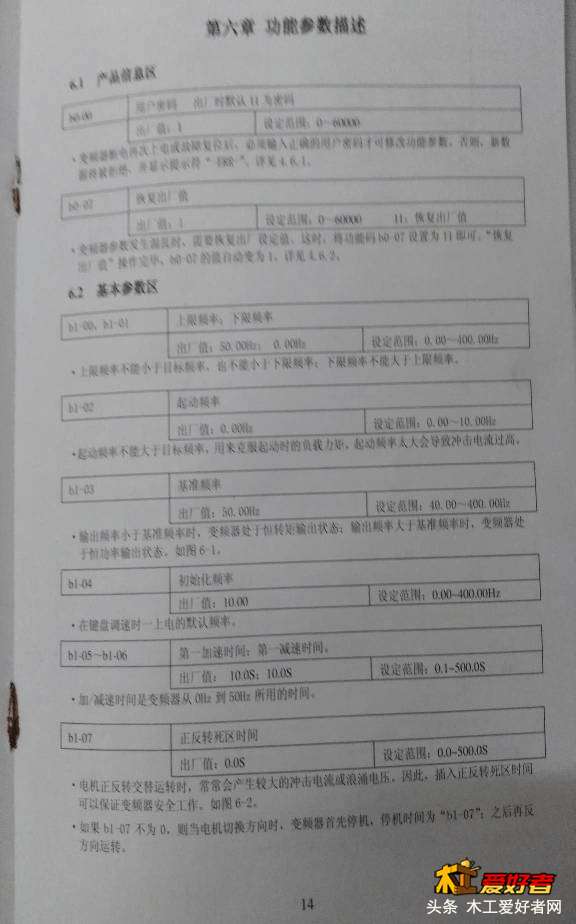 第六章 功能参数描述
6.1 产品信息区
b0-00 用户密码 出厂时默认11为密码
出厂值：1 设定范围：0～60000
·变频器断电再次上电或故障复位后，必须输入正确的用户密码才可修改功能参数，否则，新数
据将被拒绝，并显示提示符“-ERR-”。详见4.6.1。
b0-07 恢复出厂值
出厂值：1 设定范围：0～60000 11：恢复出厂值
·变频器参数发生混乱时，需要恢复出厂设定值，这时，将功能码b0-07设置为11即可。“恢复
出厂值”操作完毕，b0-07的值自动变为1。详见4.6.2。
6.2 基本参数区
b1-00，b1-01 上限频率；下限频率
出厂值：50.00Hz； 0.00Hz 设定范围：0.00～400.00Hz
·上限频率不能小于目标频率，也不能小于下限频率；下限频率不能大于上限频率。
b1-02 起动频率
出厂值：0.00Hz 设定范围：0.00～10.00Hz
·起动频率不能大于目标频率，用来克服起动时的负载力矩，起动频率太大会导致冲击电流过高。
b1-03 基准频率
出厂值：50.00Hz 设定范围：40.00～400.00Hz
·输出频率小于基准频率时，变频器处于恒转矩输出状态；输出频率大于基准频率时，变频器处
于恒功率输出状态。如图6-1。
b1-04 初始化频率
出厂值：10.00 设定范围：0.00~400.00Hz
·在键盘调速时一上电的默认频率。
b1-05～b1-06 第一加速时间；第一减速时间。
出厂值： 10.0S；10.0S 设定范围：0.1~500.0S
·加/减速时间是变频器从0Hz到50Hz所用的时间。
b1-07 正反转死区时间
出厂值：0.0S 设定范围：0.0~500.0S
·电机正反转交替运转时，常常会产生较大的冲击电流或浪涌电压。因此，插入正反转死区时间
可以保证变频器安全工作。如图6-2。
·如果b1-07不为0，则当电机切换方向时，变频器首先停机，停机时间为“b1-07”；之后再反
方向运转。
木工爱好者
头条 木工爱好者网
14